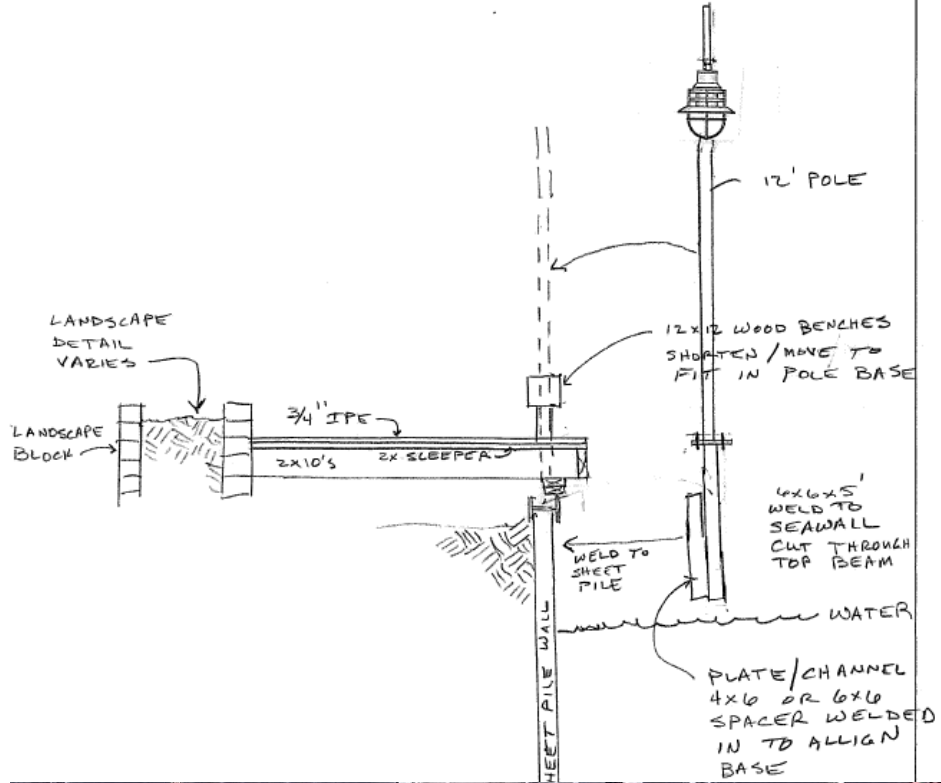 12' POLE
LANDSCAPE
DETAIL
VARIES
12x12 WOOD BENCHES
SHORTEN/MOVE TO
FIT IN POLE BASE
LANDSCAPE
BLOCK
3/4" IPE
2x10's
2x SLEEPER
6x6x5'
WELD TO
SEAWALL
CUT THROUGH
TOP BEAM
WELD TO
SHEET
PILE
WATER
SHEET PILE WALL
PLATE/CHANNEL
4x6 OR 6x6
SPACER WELDED
IN TO ALLIGN
BASE